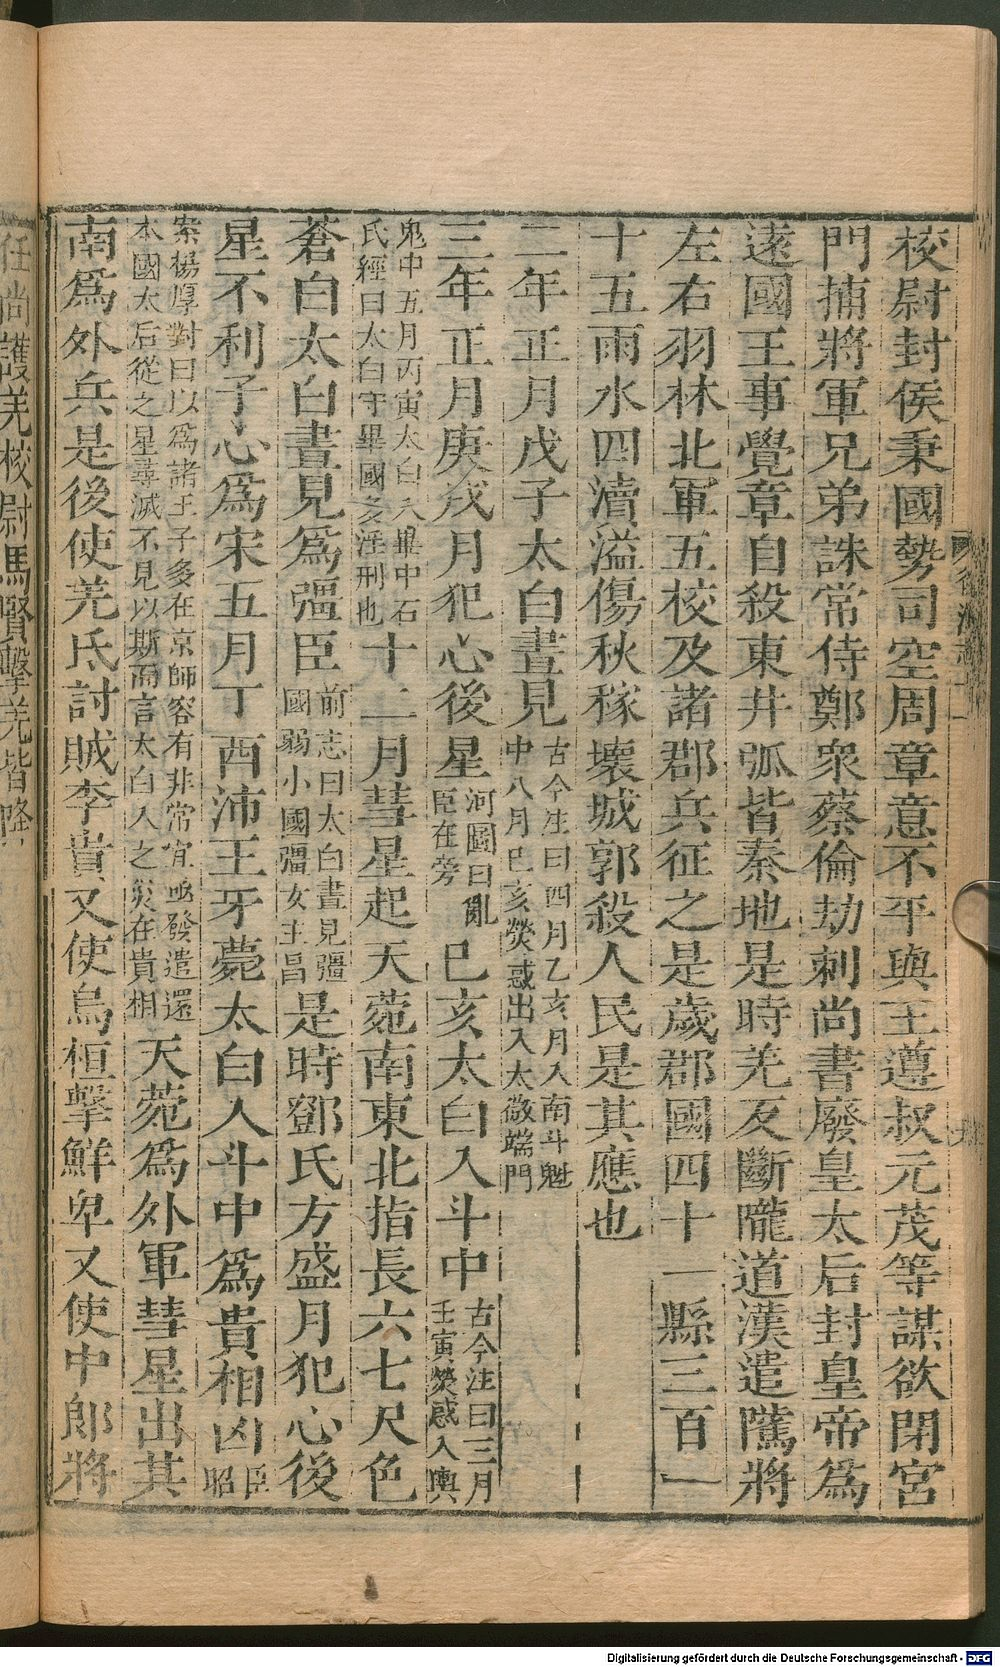 校尉封侯秉國勢司空周章意不平與王尊叔元茂等謀欲閉宮
門捕將軍兄弟誅常侍鄭衆蔡倫劫刺尚書廢皇太后封皇帝爲
遠國王事覺章自殺東井弧皆秦地是時羌反斷隴道漢遣騭將
左右羽林北軍五校及諸郡兵征之是歲郡國四十一縣三百一
十五雨水四瀆溢傷秋稼壞城郭殺人民是其應也
二年正月戊子太白晝見古今注曰四月乙亥月入南斗魁
中八月己亥熒惑出入太微端門
三年正月庚戌月犯心後星河圖曰亂
臣在旁己亥太白入斗中古今注曰三月
壬寅熒惑入輿
鬼中五月丙寅太白入畢中石
氏經曰太白守畢國多淫刑也十二月彗星起天菀南東北指長六七尺色
蒼白太白晝見爲彊臣前志曰太白晝見彊
國弱小國彊女主昌是時鄧氏方盛月犯心後
星不利子心爲宋五月丁酉沛王牙薨太白入斗中爲貴相凶臣
昭
案楊厚對曰以爲諸王子多在京師容有非常宜亟發遣還
本國太后從之星尋滅不見以斯而言太白入之災在貴相天菀爲外軍彗星出其
南爲外兵是後使羌氐討賊李貴又使烏桓擊鮮卑又使中郎將
任尚護羌校尉馬賢擊羌皆降
Digitalisierung gefördert durch die Deutsche Forschungsgemeinschaft - DFG